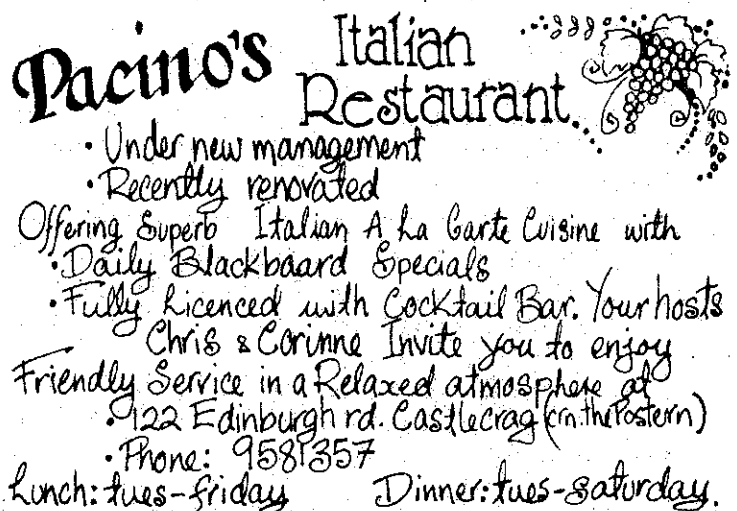 Pacino's Italian Restaurant
• Under new management
• Recently renovated
Offering Superb Italian A La Carte Cuisine with
• Daily Blackboard Specials
• Fully Licenced with Cocktail Bar. Your hosts
Chris & Corinne Invite you to enjoy
Friendly Service in a Relaxed atmosphere at
• 122 Edinburgh rd. Castlecrag (crn. the Postern)
• Phone: 9581357
Lunch: tues-friday Dinner: tues-saturday.